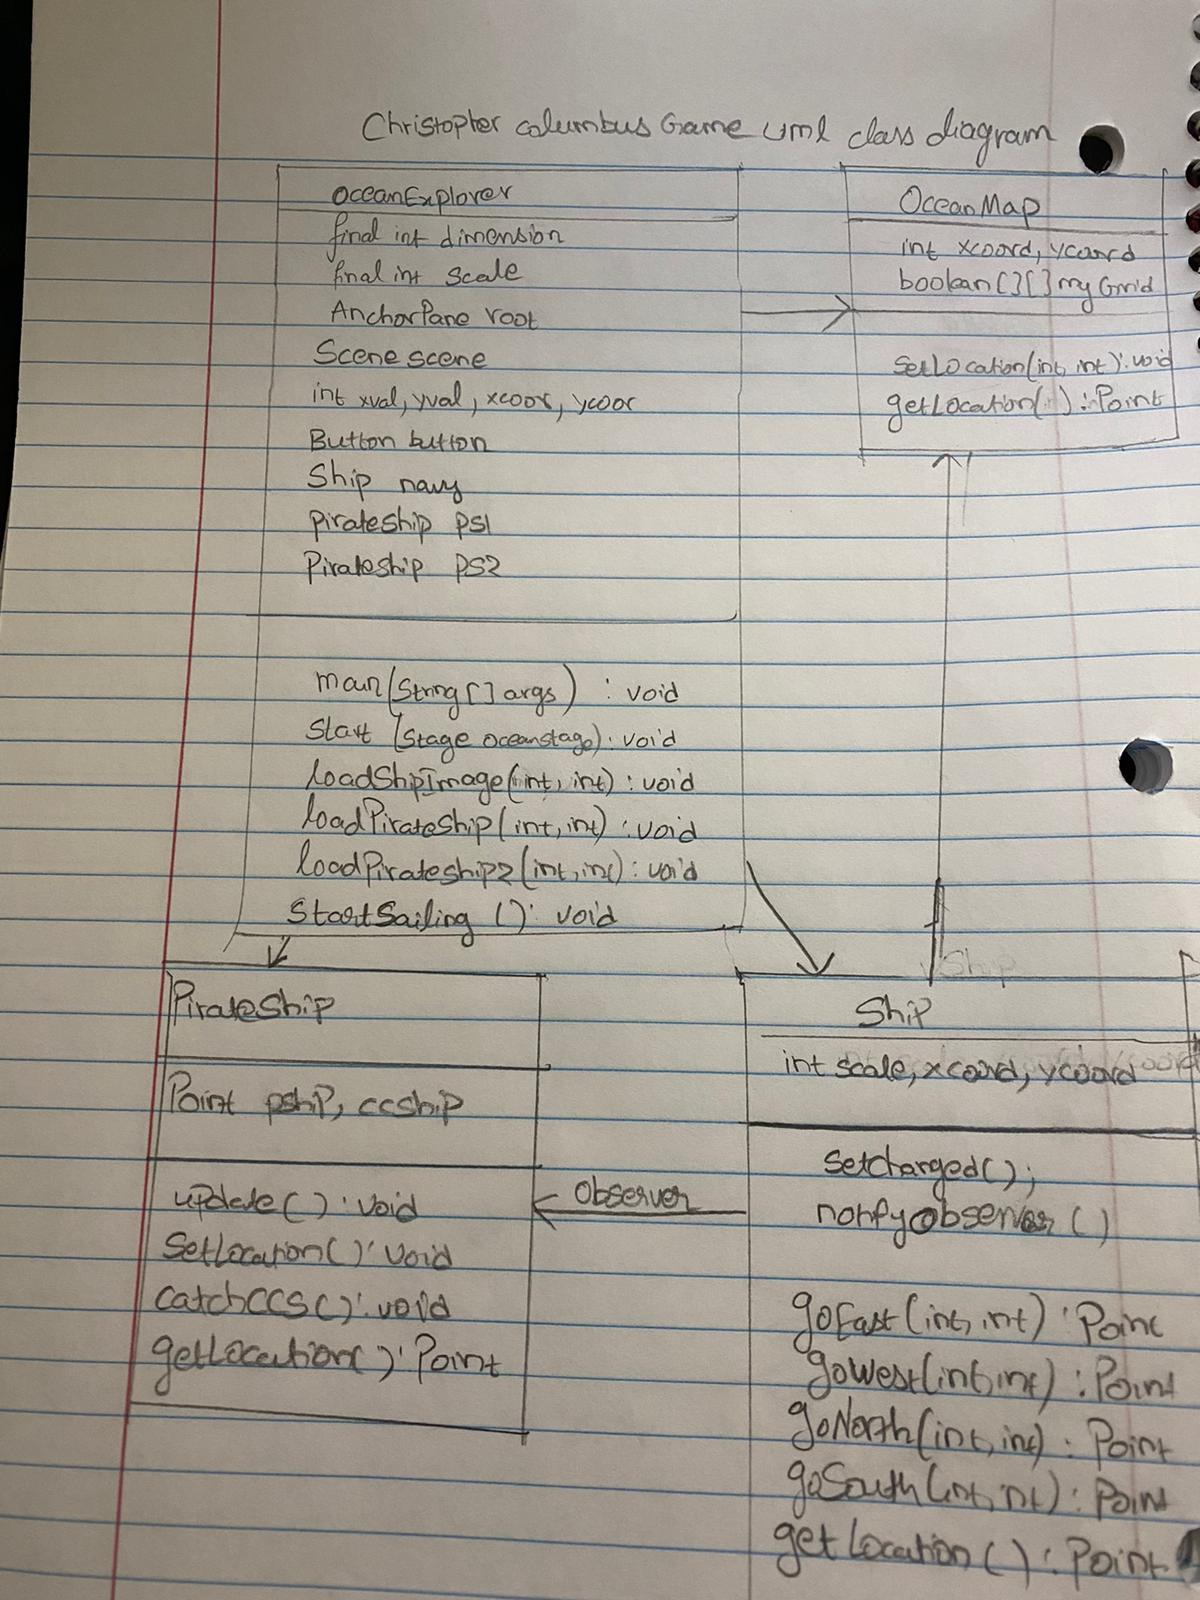 Christopher columbus Game uml class diagram
OceanExplorer
final int dimension
final int scale
AnchorPane root
Scene scene
int xval, yval, xcoor, ycoor
Button button
Ship navy
Pirateship ps1
Pirateship ps2
main(String[] args) : void
start (Stage oceanstage) : void
loadShipImage(int, int) : void
loadPirateShip(int, int) : void
loadPirateship2(int, int) : void
StartSailing () : void
OceanMap
int xcoord, ycoord
boolean[][] myGrid
setLocation(int, int) : void
getLocation( ) : Point
PirateShip
Point pship, ccship
update() : void
SetLocation() : void
catchCCS() : void
getLocation() : Point
Observer
Ship
Ship
int scale, xcoord, ycoord
setcharged();
notifyobserver ()
goEast(int, int) : Point
goWest(int, int) : Point
goNorth(int, int) : Point
goSouth(int, int) : Point
getLocation() : Point